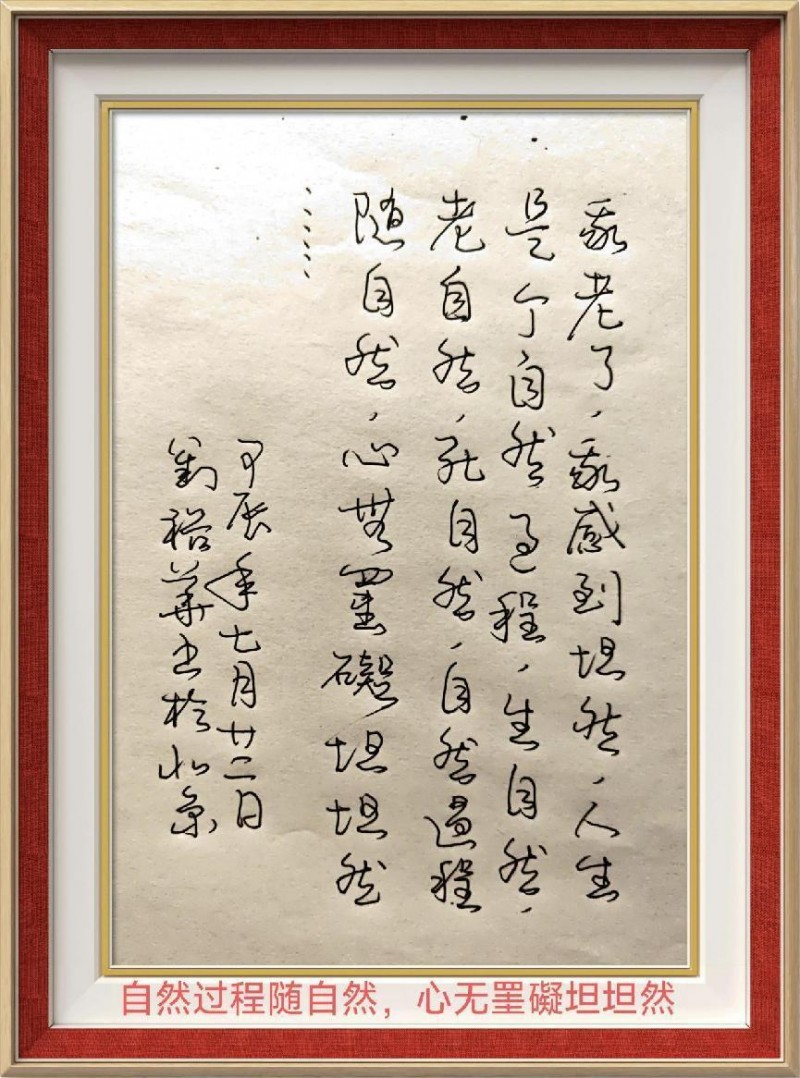 我老了，我感到坦然，人生
是个自然过程，生自然，
老自然，死自然，自然過程
随自然，心無罣礙坦坦然
……
甲辰年七月廿二日
劉裕華书於北京
自然过程随自然，心无罣礙坦坦然